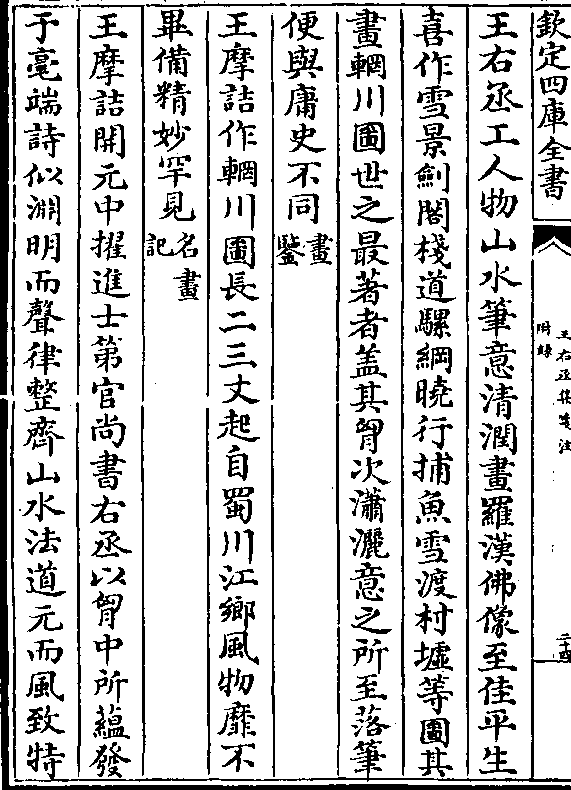 欽定四庫全書
王右丞集箋注
附錄
二十四
王右丞工人物山水筆意清潤畫羅漢佛像至佳平生
喜作雪景劍閣棧道騾綱曉行捕魚雪渡村墟等圖其
畫輞川圖世之最著者盖其胷次瀟灑意之所至落筆
便與庸史不同畫鑒
王摩詰作輞川圖長二三丈起自蜀川江鄉風物靡不
畢備精妙罕見名畫記
王摩詰開元中擢進士第官尚書右丞以胷中所蘊發
于毫端詩似淵明而聲律整齊山水法道元而風致特